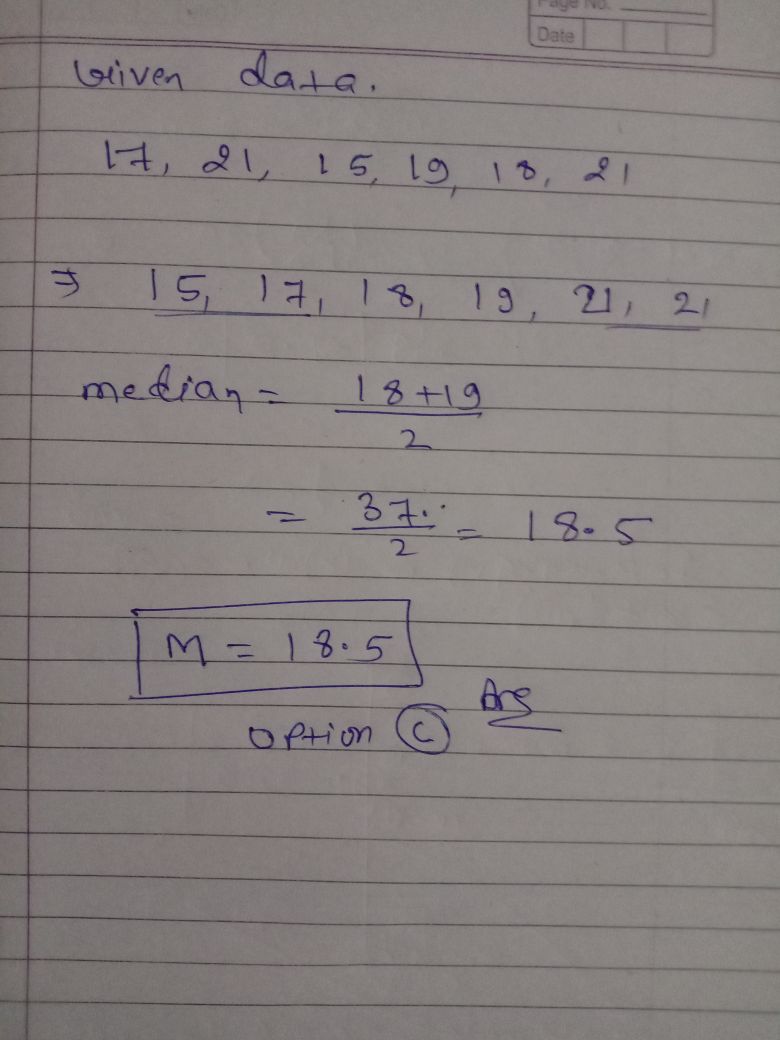 Page No.
Date
Given data.
17, 21, 15, 19, 18, 21
⇒ 15, 17, 18, 19, 21, 21
median = 18+19
2
= 37 = 18.5
2
M = 18.5
Ans
option C